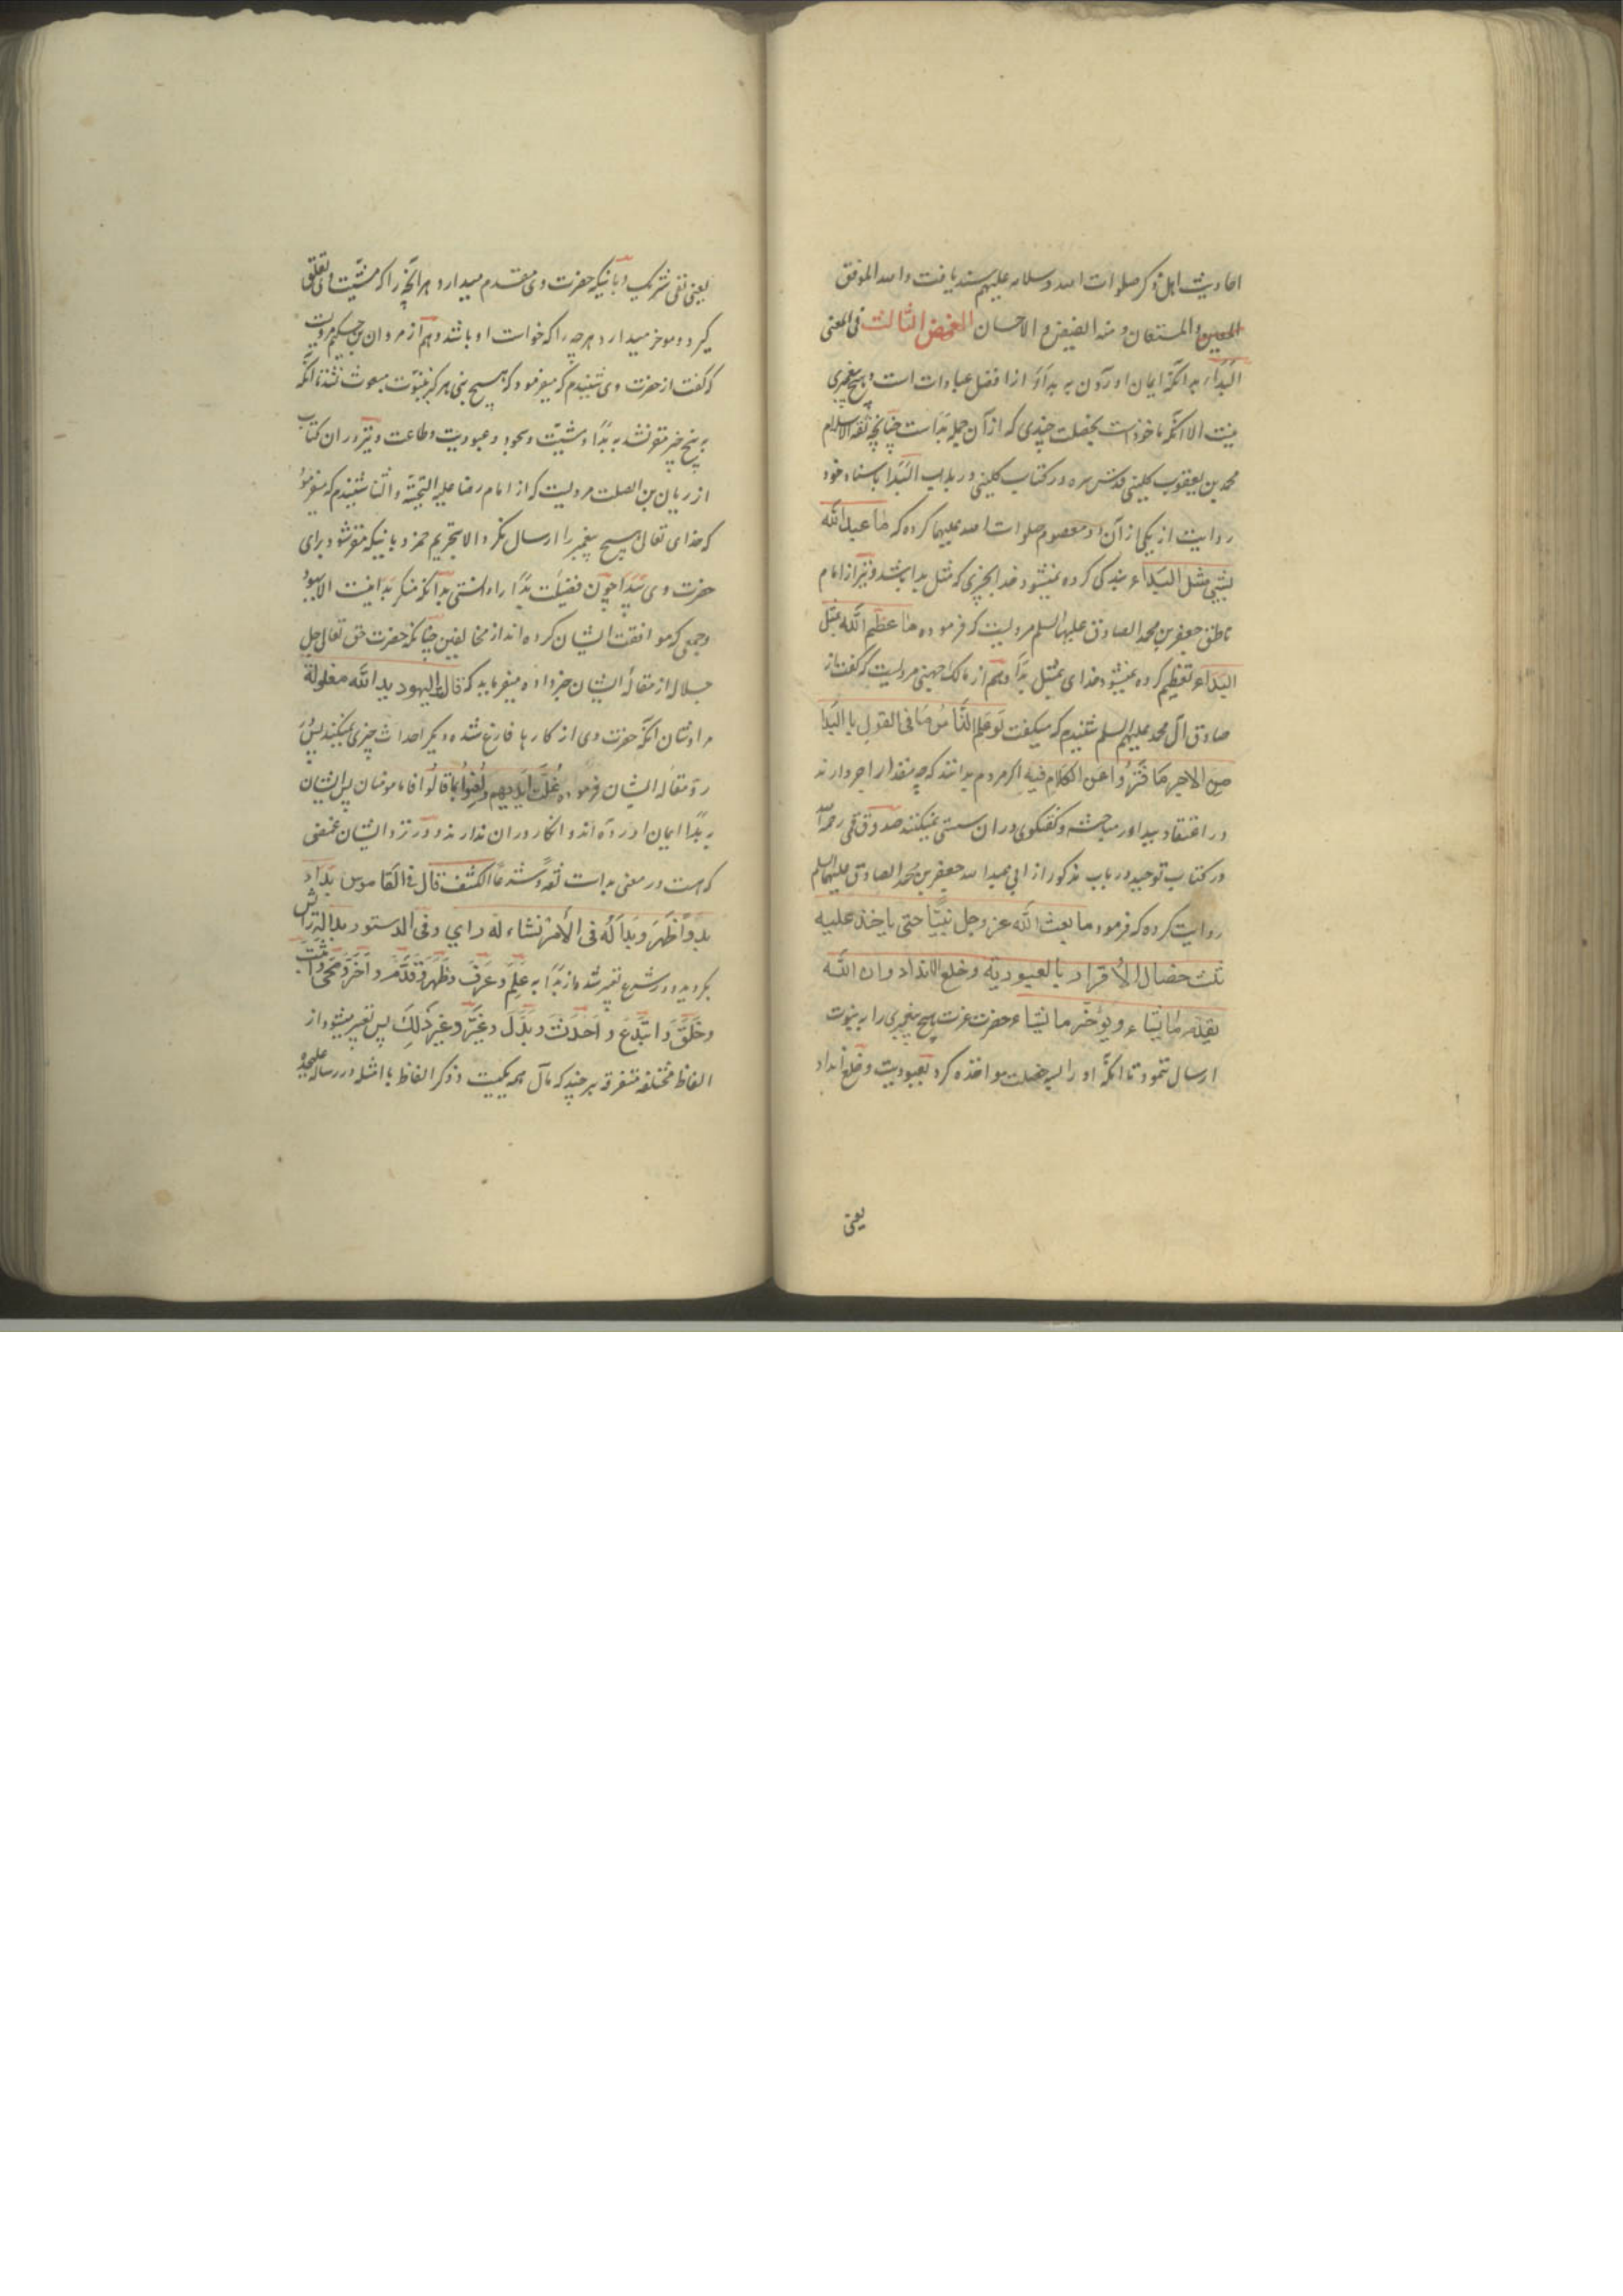 احادیث اهل ذکر صلوات الله و سلامه علیهم سند یافت والله الموفق
المعین و المستعان و منه الفیض و الاحسان الغمض الثالث فی المعنی
البداء بدانکه ایمان اوردن به بداء از افضل عبادات است و هیچ پیغمبری
نیست الا انکه ماخوذ است بخصلت چندی که از آن جمله بداست چنانچه ثقة الاسلام
محمد بن یعقوب کلینی قدس سره در کتاب کلینی در باب البدا باسناد خود
روایت از یکی از آن دو معصوم صلوات الله علیهما کرده که ما عبد الله
بشیی مثل البداء بندگی کرده نمیشود خدا بچیزی که مثل بدا باشد و نیز از امام
ناطق جعفر بن محمد الصادق علیهما السلم مرویست که فرموده ما عظم الله بمثل
البداء تعظیم کرده نمیشود خدای بمثل بدا و هم از مالک جهنی مرویست که گفت از
صادق آل محمد علیهم السلم شنیدم که میگفت لو علم الناس ما فی القول بالبدا
من الاجر ما فتروا عن الکلام فیه اگر مردم بدانند که چه مقدار اجر دارند
در اعتقاد ببدا در مباحثه و گفتگوی دران سستی نمیکنند صدوق قمی رحمه الله
در کتاب توحید در باب مذکور از ابی عبدالله جعفر بن محمد الصادق علیهما السلم
روایت کرده که فرمود ما بعث الله عز وجل نبیًا حتی یاخذ علیه
ثلث خصال الاقرار بالعبودیة و خلع الانداد و ان الله
یقدم ما یشاء و یؤخر ما یشاء حضرت عزت هیچ پیغمبری را به نبوت
ارسال ننمود تا انکه او را بسه خصلت مواخذه کرد بعبودیت و خلع انداد
یعنی
یعنی نفی شریک و بانیکه حضرت وی مقدم میدارد هر انچه را که مشیت وی تعلق
گیرد و موخر میدارد هرچه را که خواست او باشد و هم از مروان بن حکیم مرویست
که گفت از حضرت وی شنیدم که میفرمود که هیچ نبی هرگز بنبوت مبعوث نشد تا انکه
به پنج خبر مقر نشد به بدا و مشیت و سجود و عبودیت و طاعت و نیز در ان کتاب
از ریان بن الصلت مرویست که از امام رضا علیه التحیة والثنا شنیدم که میفرمود
که خدای تعالی هیچ پیغمبر را ارسال نکرد الا بتحریم خمر و بانیکه مقر شود برای
حضرت وی ببدا چون فضیلت بدا را دانستی بدانکه منکر بدا نیست الا یهود
و جمعی که موافقت ایشان کرده اند از مخالفین چنانکه حضرت حق تعالی جل
جلاله از مقالهٔ ایشان خبر داده میفرماید که قالت الیهود ید الله مغلولة
مرادشان انکه حضرت وی از کارها فارغ شده دیگر احداث چیزی نمیکند پس
رد مقاله ایشان فرموده غلت ایدیهم و لعنوا بما قالوا اما مومنان پس ایشان
به بدا ایمان اورده اند و انکار دران ندارند و در نزد ایشان غمضی
که هست در معنی بداست لغة و شرعًا الکشف قال فی القاموس بدا
بدوًا ظهر و بدا له فی الامر نشاء له رای و فی الدستور بدا له رایش
بگردید و در شرع تعبیر شده از بدا به علم و عرف و ظهر و قدم و اخر و محی و اثبت
و خلق و ابتدع و احدث و بدل و غیر و غیر ذلک پس تعبیر میشود از
الفاظ مختلفه متفرقه هر چند که مآل همه یکیست و ذکر الفاظ با امثله در رساله علیحده